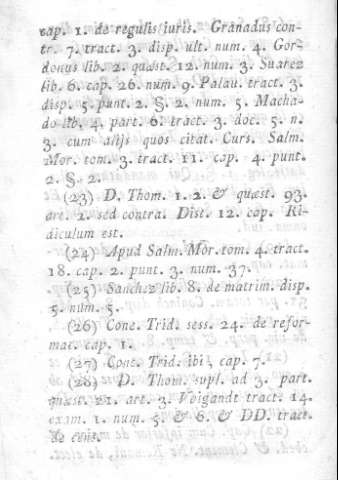 cap. 1. de regulis iuris. Granadus con-
tr. 7. tract. 3. disp. ult. num. 4. Gor-
donus lib. 2. quæst. 12. num. 3. Suarez
lib. 6. cap. 26. num. 9. Palau. tract. 3.
disp. 5. punt. 2. §. 2. num. 5. Macha-
do lib. 4. part. 6. tract. 3. doc. 5. n.
3. cum alijs quos citat. Curs. Salm.
Mor. tom. 3. tract. 11. cap. 4. punt.
2. §. 2.
(23) D. Thom. 1. 2. & quæst. 93.
art. 2. sed contra. Dist. 12. cap. Ri-
diculum est.
(24) Apud Salm. Mor. tom. 4. tract.
18. cap. 2. punt. 3. num. 37.
(25) Sanchez lib. 8. de matrim. disp.
5. num. 5.
(26) Conc. Trid. sess. 24. de refor-
mat. cap. 1.
(27) Conc. Trid. ibi, cap. 7.
(28) D. Thom. supl. ad 3. part.
quæst. 21. art. 3. Voigandt tract. 14.
exam. 1. num. 5. & 6. & DD. tract.
de cens.